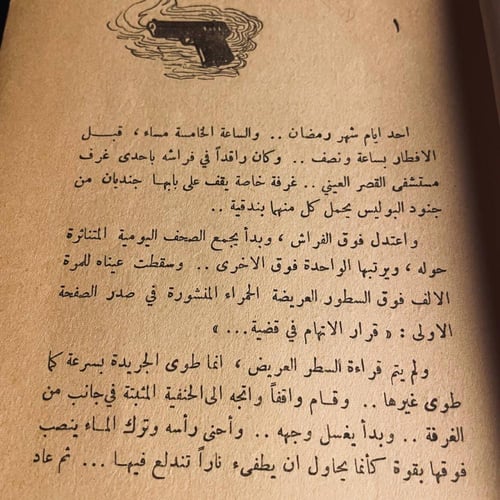 ١
احد ايام شهر رمضان .. والساعة الخامسة مساء ، قبـــل
الافطار بساعة ونصف .. وكان راقداً في فراشه باحدى غرف
مستشفى القصر العيني .. غرفة خاصة يقف على بابهـا جنديان من
جنود البوليس يحمل كل منهما بندقية ..
واعتدل فوق الفراش ، وبدأ يجمع الصحف اليومية المتناثرة
حوله ، ويرتبها الواحدة فوق الاخرى .. وسقطت عيناه للمرة
الالف فوق السطور العريضة الحمراء المنشورة في صدر الصفحة
الاولى : « قرار الاتهام في قضية ... »
ولم يتم قراءة السطر العريض ، انما طوى الجريدة بسرعة كما
طوى غيرها .. وقـام واقفاً واتجه الى الحنفية المثبتة في جانب من
الغرفة .. وبدأ يغسل وجهه .. وأحنى رأسه وترك المـاء ينصب
فوقها بقوة كأنما يحاول ان يطفىء ناراً تندلع فيهـا ... ثم عاد